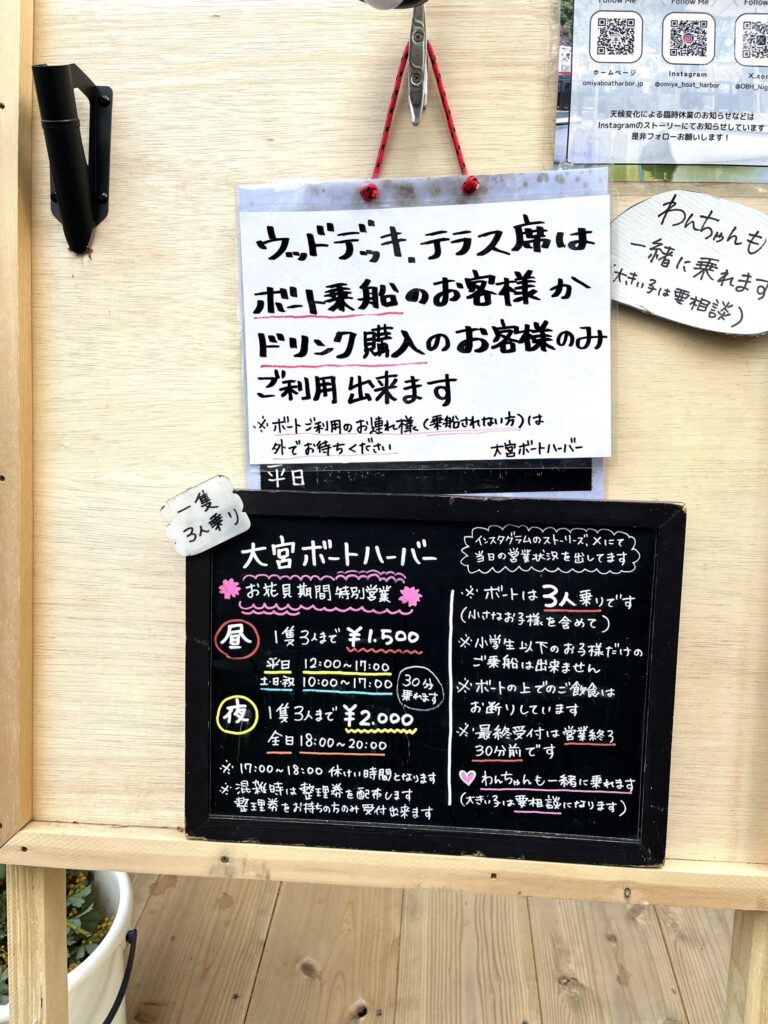 Follow Me
Follow Me
Follow Me
ホームページ
Instagram
omiyaboatharbor.jp
@omiya_boat_harbor
天候変化による臨時休業のお知らせなどは
Instagramのストーリーにてお知らせしています
是非フォローお願いします！
わんちゃんも
一緒に乗れます
(大きい子は要相談)
ウッドデッキ.テラス席は
ボート乗船のお客様か
ドリンク購入のお客様のみ
ご利用出来ます
※ボートご利用のお連れ様(乗船されない方)は
外でお待ちください
大宮ボートハーバー
平日
一隻
3人乗り
大宮ボートハーバー
お花見期間特別営業
昼 1隻3人まで ¥1.500
平日 12:00~17:00
土・日・祝 10:00~17:00
30分
乗れます
夜 1隻3人まで ¥2.000
全日 18:00~20:00
※ 17:00~18:00 休けい時間となります
※ 混雑時は整理券を配布します
整理券をお持ちの方のみ受付出来ます
インスタグラムのストーリーズ、Xにて
当日の営業状況を出してます
※ ボートは3人乗りです
(小さなお子様を含めて)
※小学生以下のお子様だけの
ご乗船は出来ません
※ボートの上でのご飲食は
お断りしています
※ 最終受付は営業終了
30分前です
わんちゃんも一緒に乗れます
(大きい子は要相談になります)